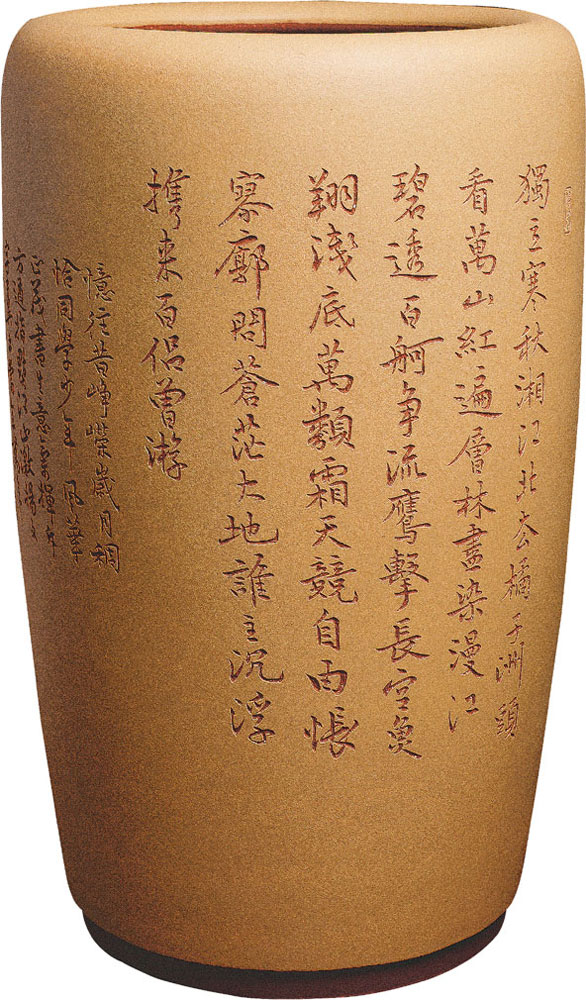 獨立寒秋湘江北去橘子洲頭
看萬山紅遍層林盡染漫江
碧透百舸争流鷹擊長空魚
翔淺底萬類霜天競自由悵
寥廓問蒼茫大地誰主沉浮
携来百侣曾游
憶往昔峥嶸歲月稠
恰同學少年風華
正茂書生意氣揮斥
方遒指點江山激揚文